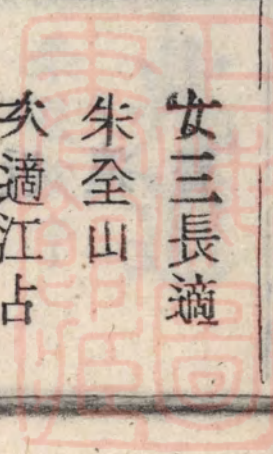 女三長適
朱全山
次適江占